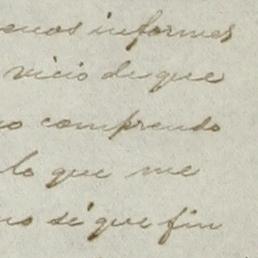 enos informes
vicio de que
no comprendo
lo que me
no sé que fin